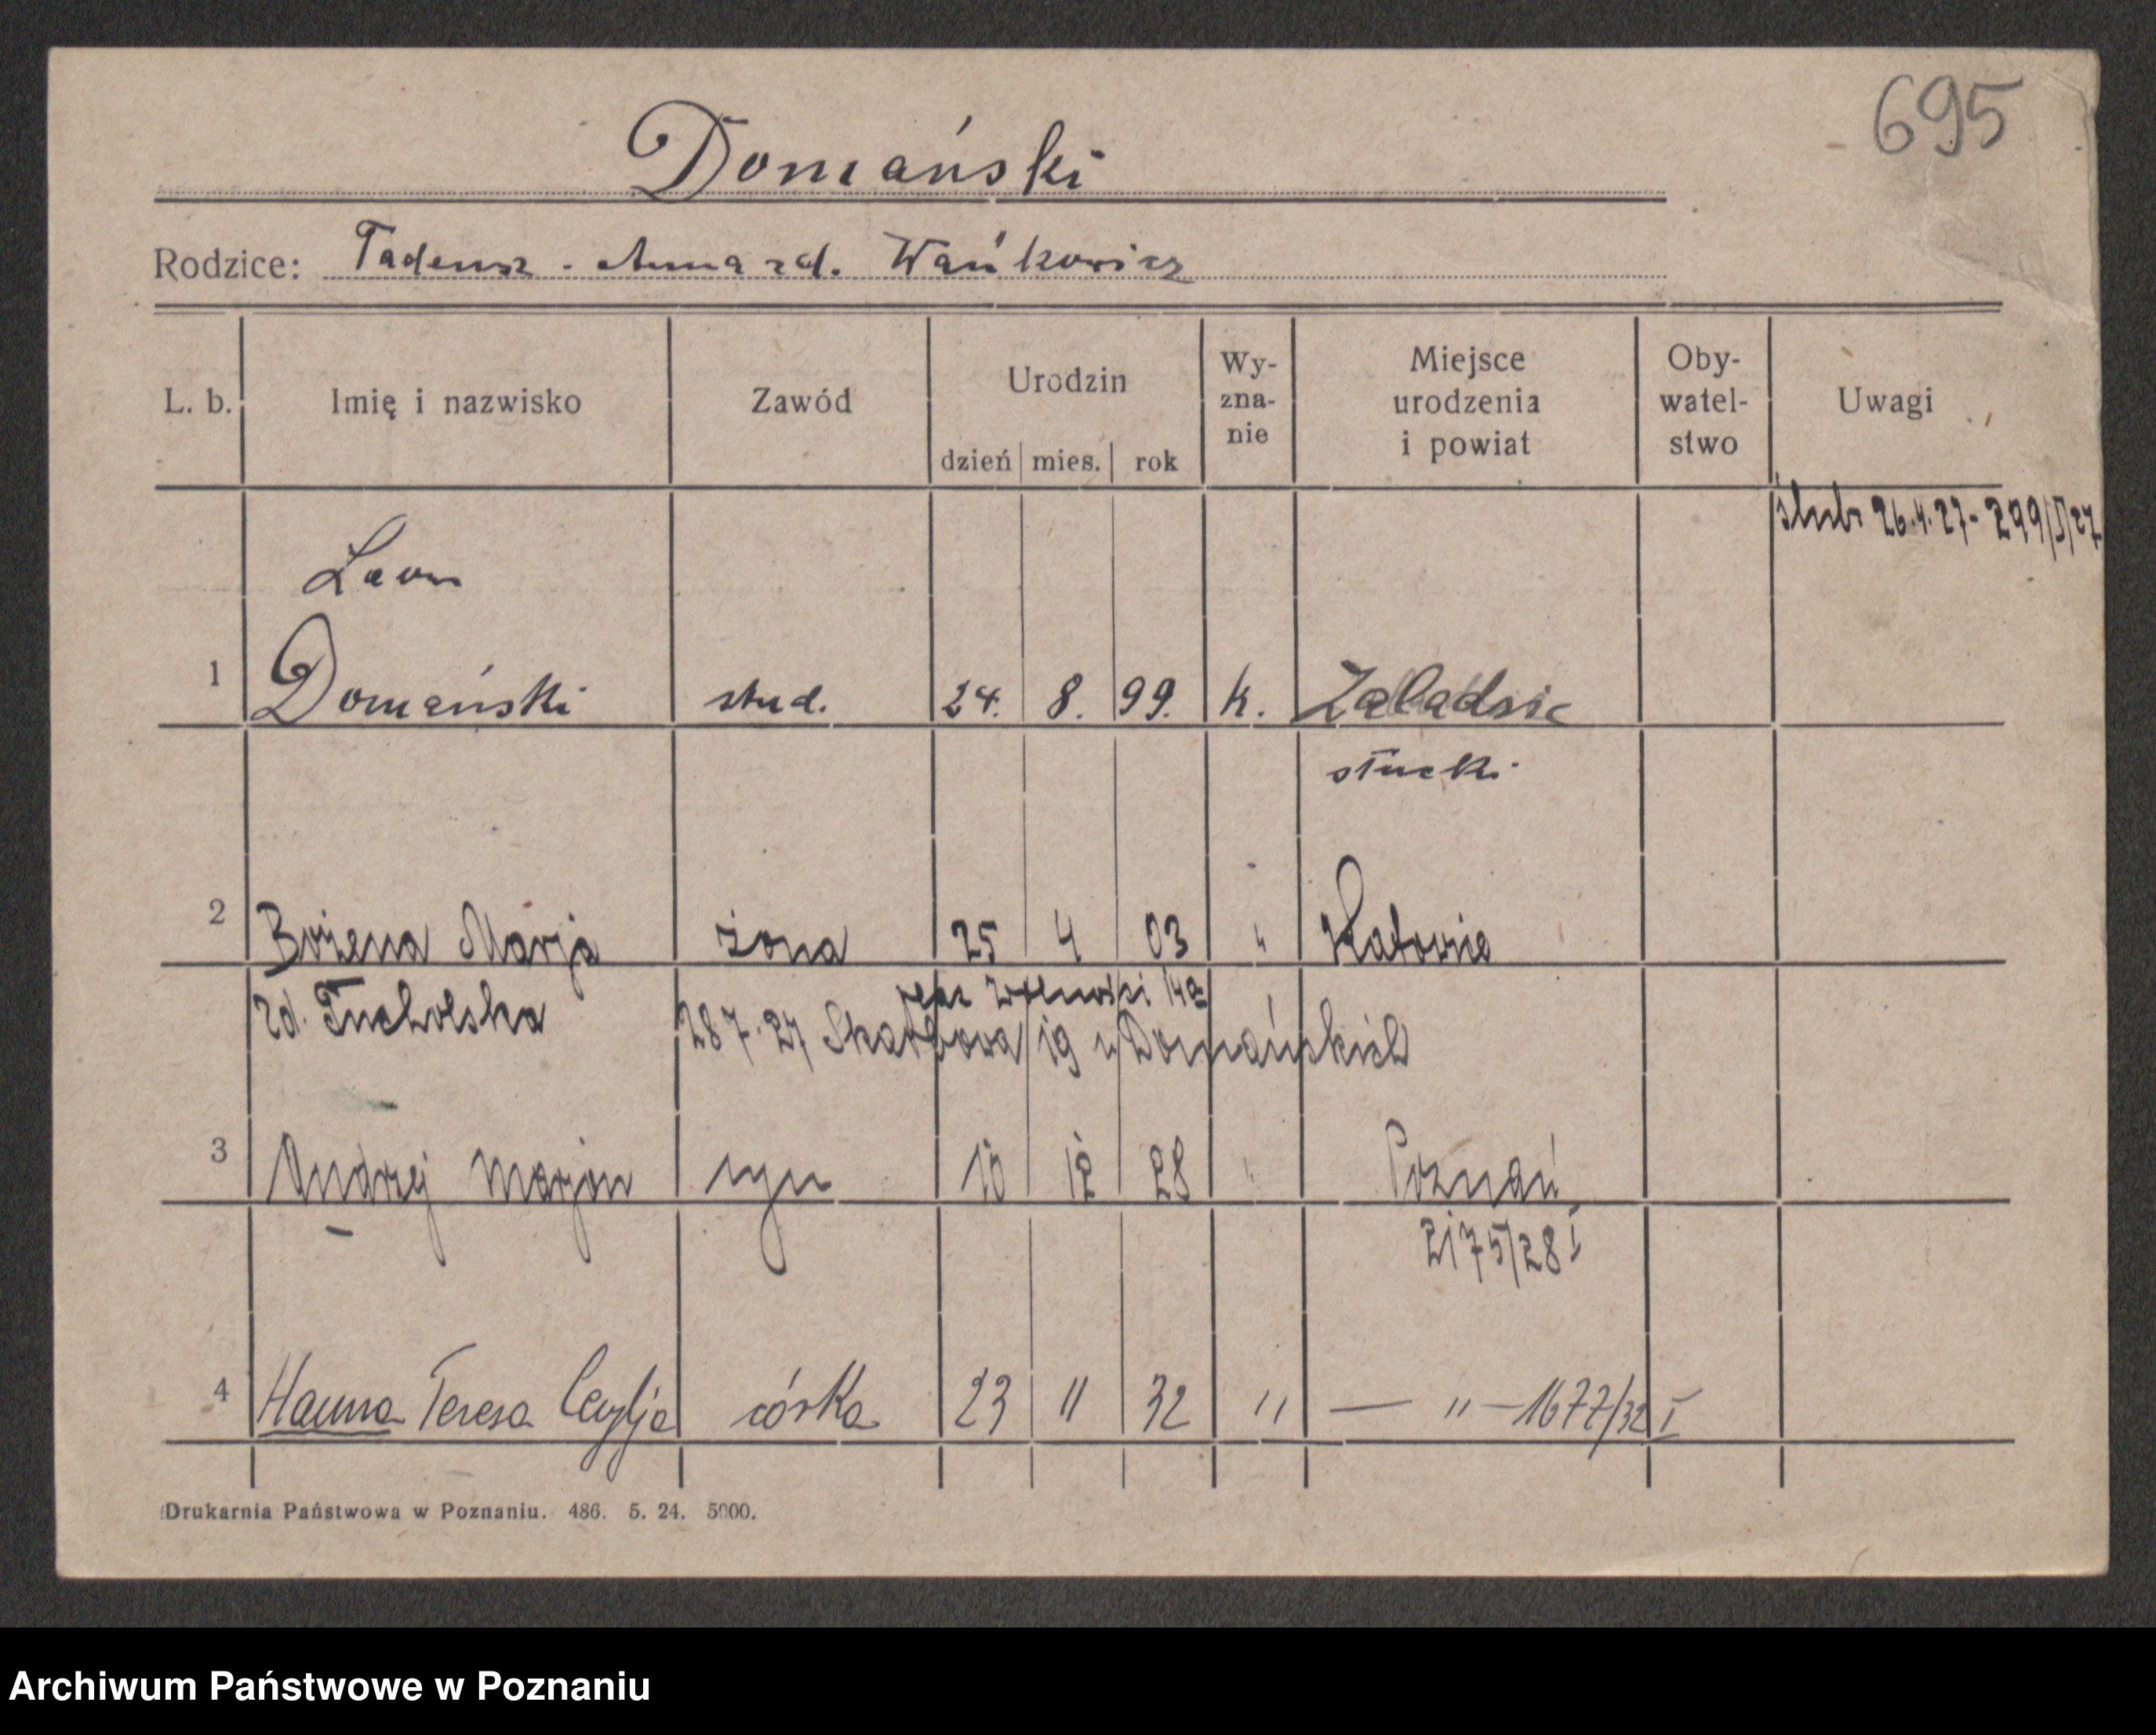 695
Domański
Rodzice: Tadeusz - Anna zd. Wańkowicz
L. b. Imię i nazwisko Zawód Urodzin dzień mies. rok Wy-zna-nie Miejsce urodzenia i powiat Oby-watel-stwo Uwagi
ślub 26.4.27 - 299/I/27
Leon
1 Domański stud. 24. 8. 99. k. Zaladsie
słucki
2 Bożena Marja żona 25 4 03 " Katowice
zd. Tucholska
Wolności 14a
28 7. 27 Skarbowa 19 u Domańskich
3 Andrzej Marjan syn 10 12 28 " Poznań
2175/28 I
4 Hanna Teresa Cecylja córka 23 11 32 " — " — 1677/32 I
Drukarnia Państwowa w Poznaniu. 486. 5. 24. 5000.
Archiwum Państwowe w Poznaniu